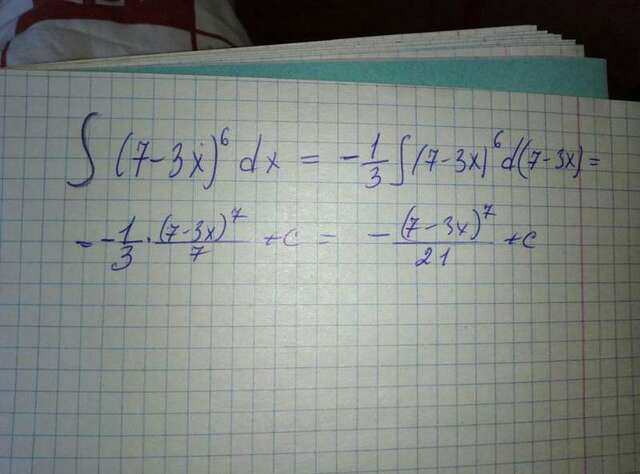 ∫ (7-3x)⁶ dx = -1/3 ∫ (7-3x)⁶ d(7-3x) =
= -1/3 · (7-3x)⁷/7 + c = -(7-3x)⁷/21 + c